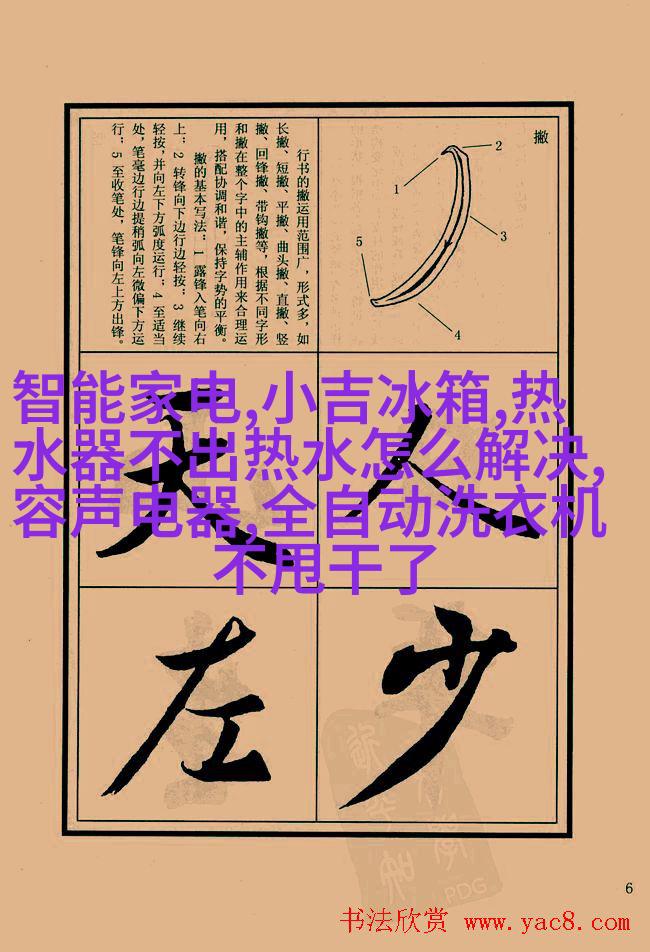 撇
1
2
3
4
5
行书的撇运用范围广，形式多，如
长撇、短撇、平撇、曲头撇、直撇、竖
撇、回锋撇、带钩撇等，根据不同字形
和撇在整个字中的主辅作用来合理运
用，搭配协调和谐，保持字势的平衡。
撇的基本写法：1 露锋入笔向右
上；2 转锋向下边行边轻按；3 继续
轻按，并向左下方弧度运行；4 至适当
处，笔毫边行边提稍弧向左微偏下方运
行；5 至收笔处，笔锋向左上方出锋。
智能家电,小吉冰箱,热
水器不出热水怎么解决,
容声电器,全自动洗衣机
不甩干了
人
天
少
左
PDG
6
书法欣赏 www.yac8.com